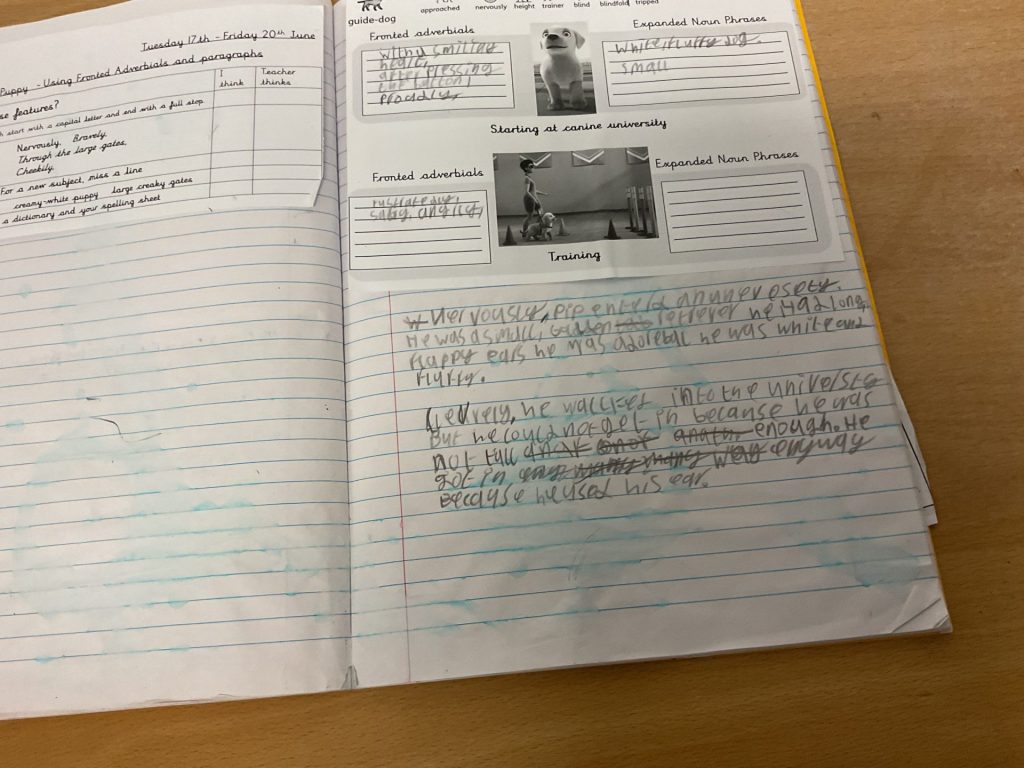 Tuesday 17th - Friday 20th June
Puppy - Using Fronted Adverbials and paragraphs
se features?
I think
Teacher thinks
h start with a capital letter and end with a full stop
Nervously, Bravely,
Through the large gates,
Cheekily,
For a new subject, miss a line
creamy-white puppy large creaky gates
a dictionary and your spelling sheet
guide-dog
approached nervously height trainer blind blindfold tripped
Fronted adverbials
smilling
after pressing
proadly,
Expanded Noun Phrases
white, fluffy dog.
small
Starting at canine university
Fronted adverbials
angrley,
Expanded Noun Phrases
Training
Nervously, Pip
He was a small, retriever he Had long,
flappy ears he was he was white and
fluffy.
he into the universte
But he could not get in because he was
not tall enough. He
got in anyway
Because he used his ear.